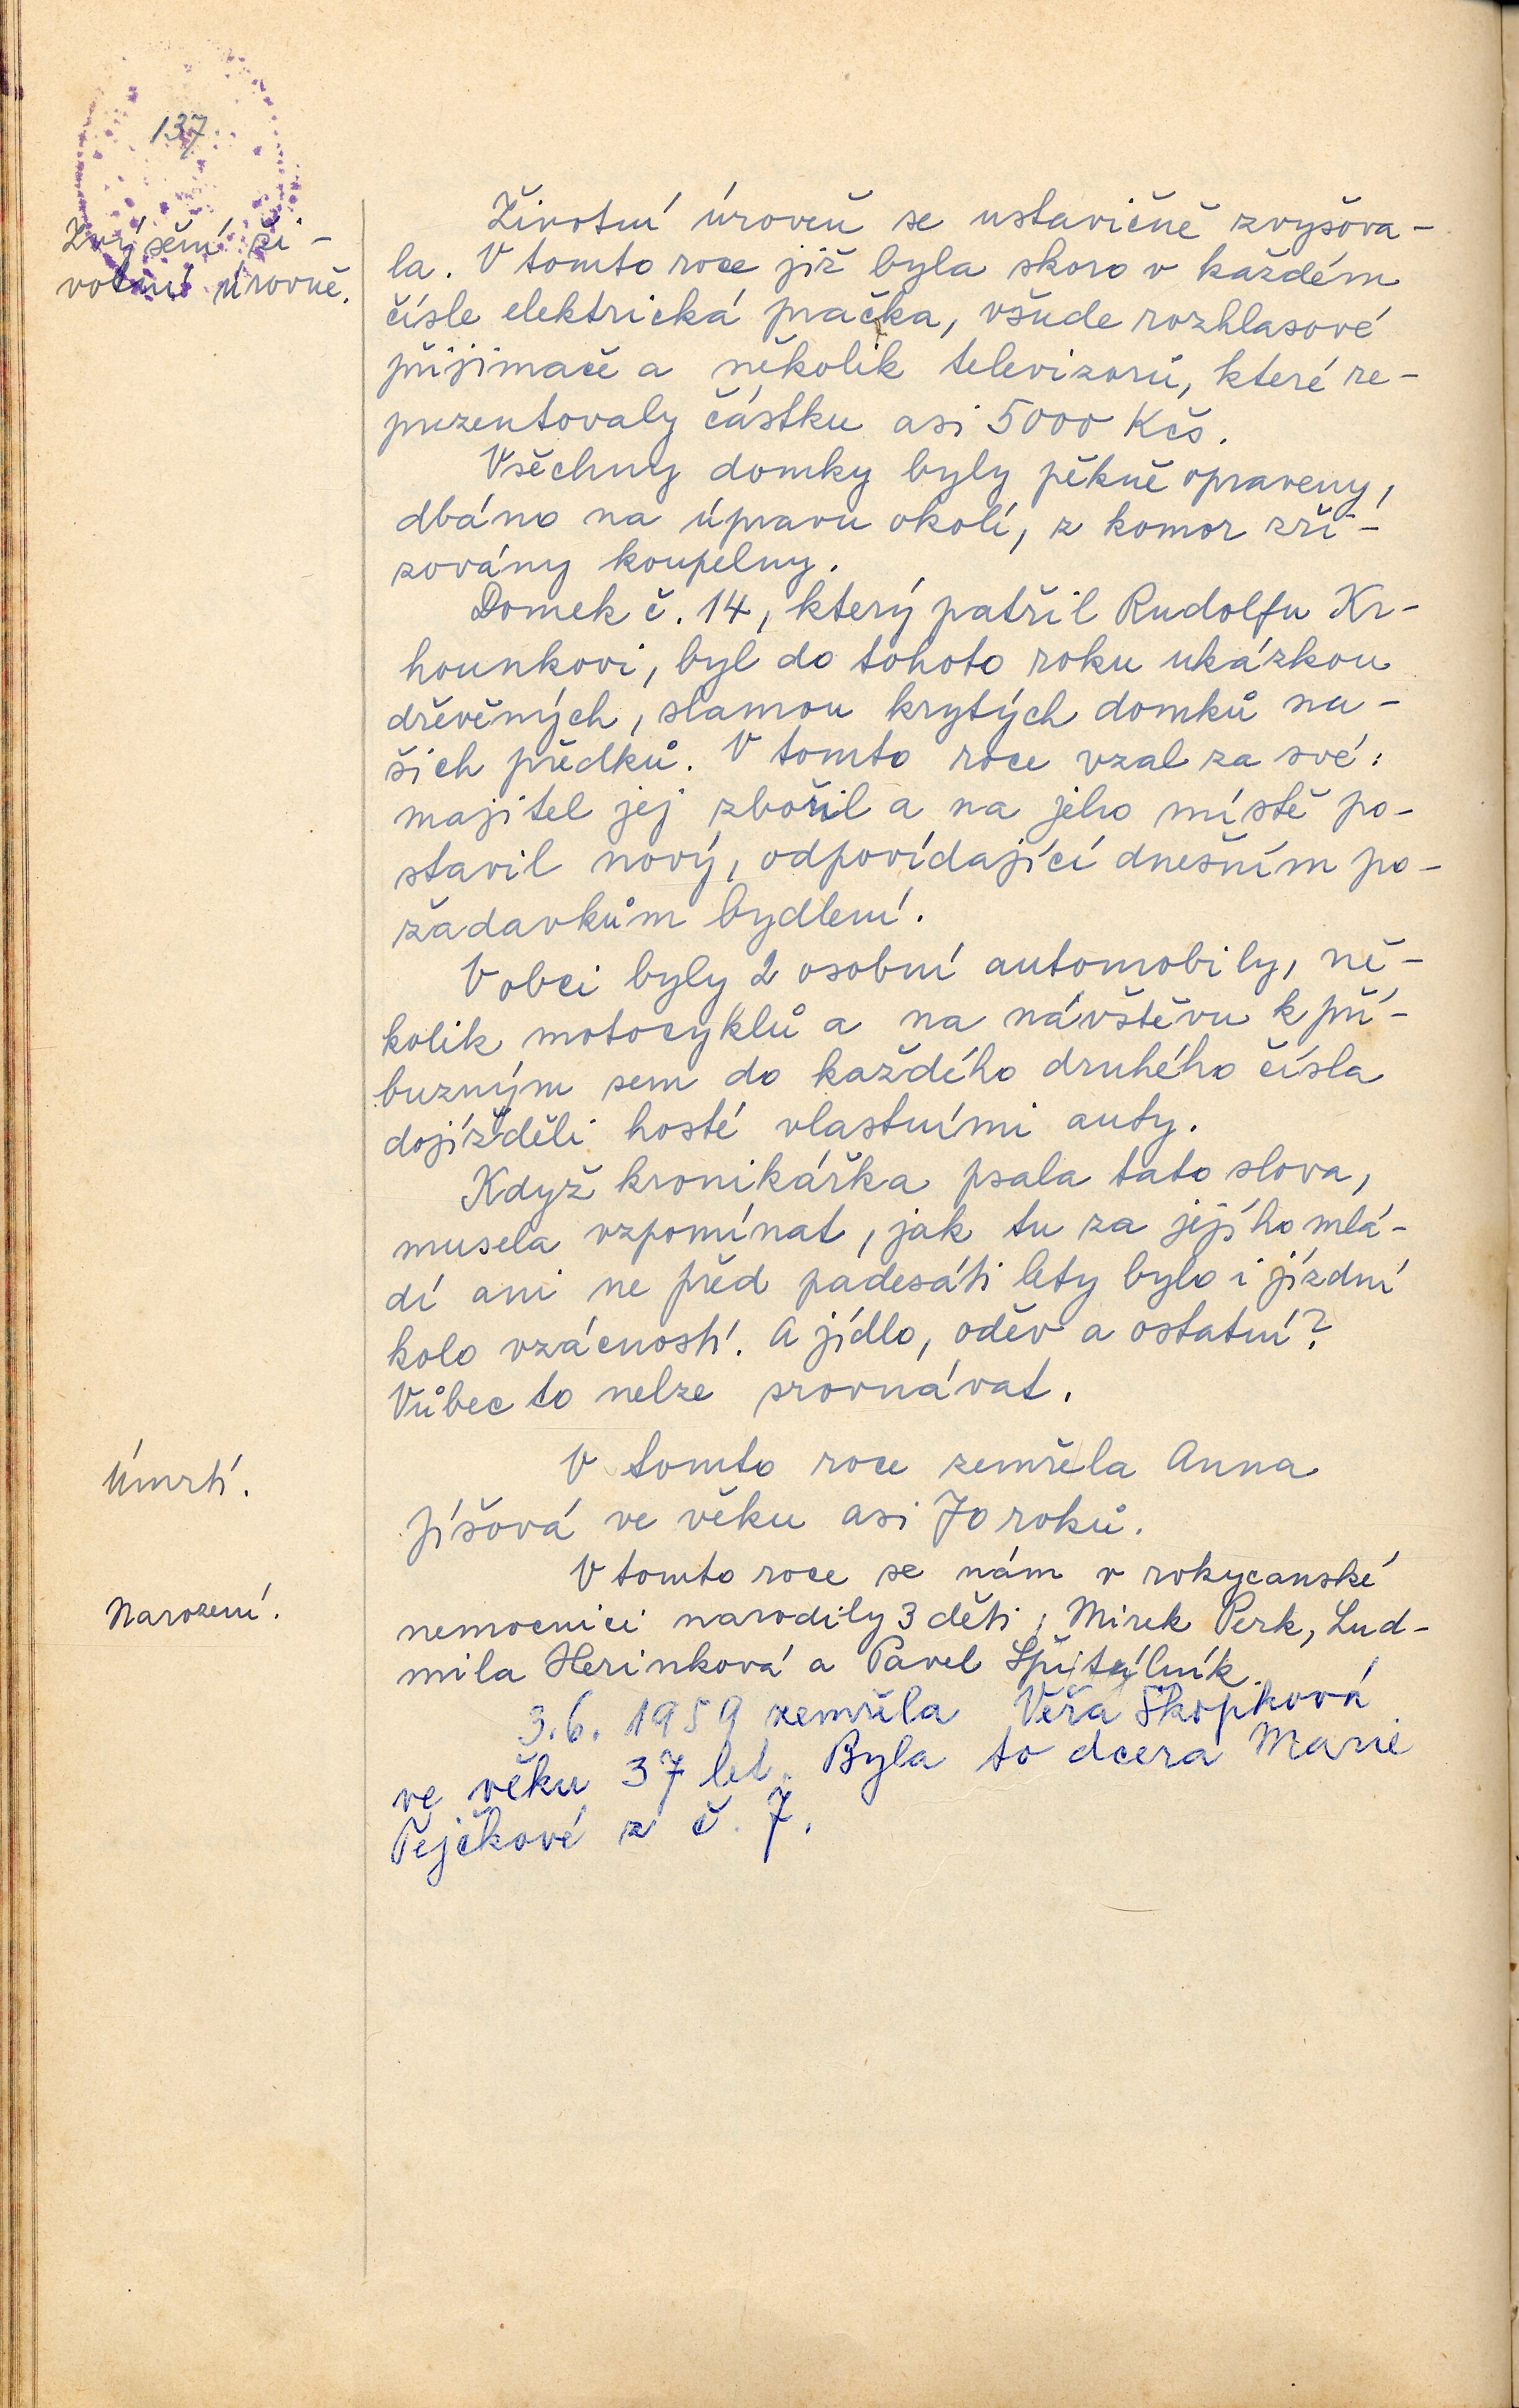 137.
Zvýšení ži-
votní úrovně.
Životní úroveň se ustavičně zvyšova-
la. V tomto roce již byla skoro v každém
čísle elektrická pračka, všude rozhlasové
přijimače a několik televizorů, které re-
prezentovaly částku asi 5000 Kčs.
Všechny domky byly pěkně opraveny,
dbáno na úpravu okolí, z komor zři-
zovány koupelny.
Domek č. 14, který patřil Rudolfu Kr-
hounkovi, byl do tohoto roku ukázkou
dřevěných, slamou krytých domků na-
šich předků. V tomto roce vzal za své:
majitel jej zbořil a na jeho místě po-
stavil nový, odpovídající dnešním po-
žadavkům bydlení.
V obci byly 2 osobní automobily, ně-
kolik motocyklů a na návštěvu k pří-
buzným sem do každého druhého čísla
dojížděli hosté vlastními auty.
Když kronikářka psala tato slova,
musela vzpomínat, jak tu za jejího mlá-
dí ani ne před padesáti lety bylo i jízdní
kolo vzácností. A jídlo, oděv a ostatní?
Vůbec to nelze srovnávat.
Úmrtí.
V tomto roce zemřela Anna
Jíšová ve věku asi 70 roků.
Narození.
V tomto roce se nám v rokycanské
nemocnici narodily 3 děti: Mirek Perk, Lud-
mila Herinková a Pavel Špitálník.
3.6. 1959 zemřela Věra Skopková
ve věku 37 let. Byla to dcera Marie
Pejčkové z č. 7.